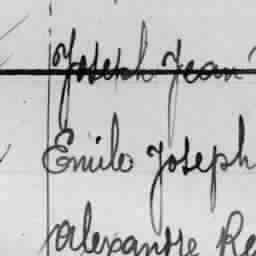 Joseph Jean
Emile Joseph
Alexandre Re